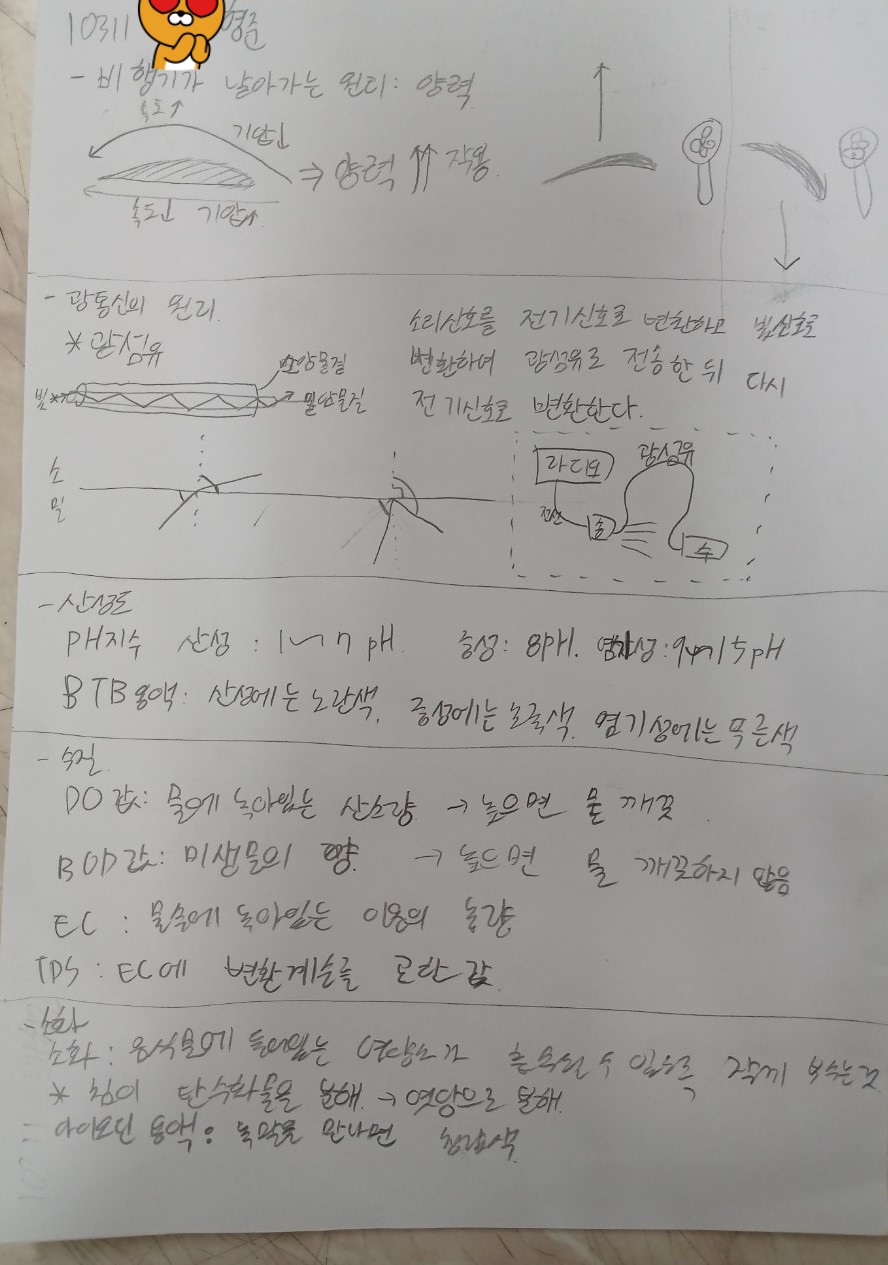 10311 형준
- 비행기가 날아가는 원리: 양력
속도↑
기압↓
⇒ 양력 ⇈ 작용.
속도↓ 기압↑
- 광통신의 원리.
* 광섬유
소한물질
빛
밀한물질
소리신호를 전기신호로 변환하고 빛신호로
변환하여 광섬유로 전송한 뒤 다시
전기신호로 변환한다.
소
밀
라디오
광섬유
전선
송
수
- 산성도
PH지수 산성 : 1~7 pH. 중성: 8PH. 염기성: 9~15pH
BTB용액: 산성에는 노란색. 중성에는 초록색. 염기성에는 푸른색
- 수질
DO값: 물에 녹아있는 산소량 → 높으면 물 깨끗
BOD값: 미생물의 양. → 높으면 물 깨끗하지 않음
EC : 물속에 녹아있는 이온의 농량
TDS : EC에 변환계수를 곱한 값.
- 소화
소화 : 음식물에 들어있는 영양소가 흡수될 수 있도록 작게 부수는것
* 침이 탄수화물을 분해. → 엿당으로 분해.
아이오딘 용액: 녹말을 만나면 청람색